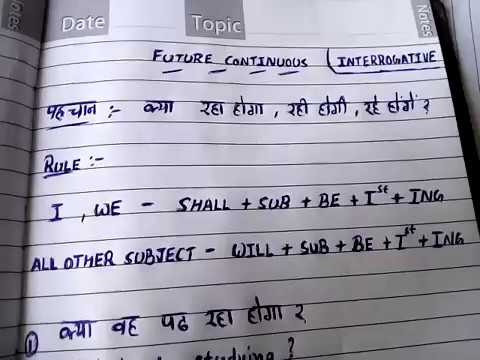 Notes Date Topic Notes
FUTURE CONTINUOUS (INTERROGATIVE
पहचान :- क्या रहा होगा, रही होगी, रहे होंगे ?
RULE :-
I, WE - SHALL + SUB + BE + Ist + ING
ALL OTHER SUBJECT - WILL + SUB + BE + Ist + ING
① क्या वह पढ रहा होगा ?
studying ?